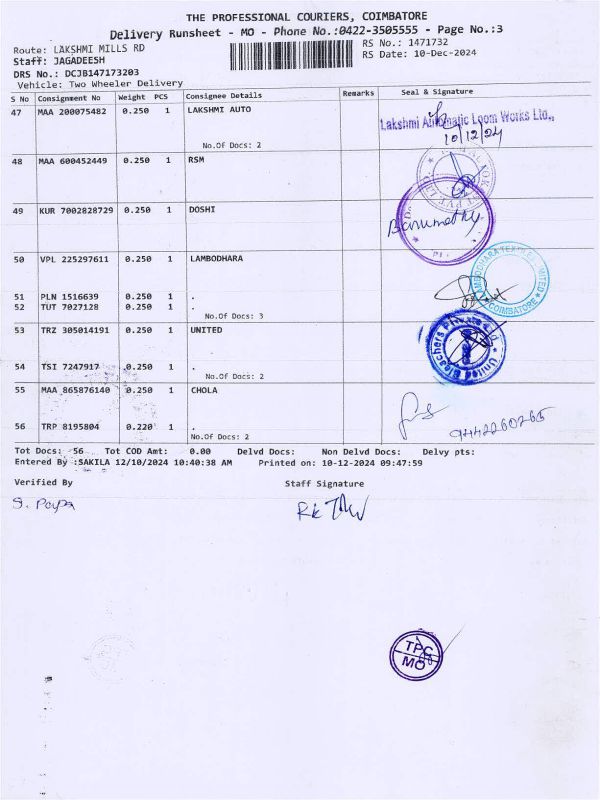 THE PROFESSIONAL COURIERS, COIMBATORE
Delivery Runsheet - MO - Phone No.:0422-3505555 - Page No.:3
Route: LAKSHMI MILLS RD
RS No.: 1471732
Staff: JAGADEESH
RS Date: 10-Dec-2024
DRS No.: DCJB147173203
Vehicle: Two Wheeler Delivery
S No Consignment No Weight PCS Consignee Details Remarks Seal & Signature
47 MAA 200075482 0.250 1 LAKSHMI AUTO
Lakshmi Automatic Loom Works Ltd.,
10/12/24
No.Of Docs: 2
48 MAA 600452449 0.250 1 RSM
49 KUR 7002828729 0.250 1 DOSHI
50 VPL 225297611 0.250 1 LAMBODHARA
LAMBODHARA TEXTILES LIMITED
COIMBATORE
51 PLN 1516639 0.250 1 .
52 TUT 7027128 0.250 1 .
No.Of Docs: 3
53 TRZ 305014191 0.250 1 UNITED
United Bleachers Private Ltd
54 TSI 7247917 0.250 1 .
No.Of Docs: 2
55 MAA 865876140 0.250 1 CHOLA
9442260265
56 TRP 8195804 0.220 1 .
No.Of Docs: 2
Tot Docs: 56 Tot COD Amt: 0.00 Delvd Docs: Non Delvd Docs: Delvy pts:
Entered By :SAKILA 12/10/2024 10:40:38 AM Printed on: 10-12-2024 09:47:59
Verified By Staff Signature
TPC
MO